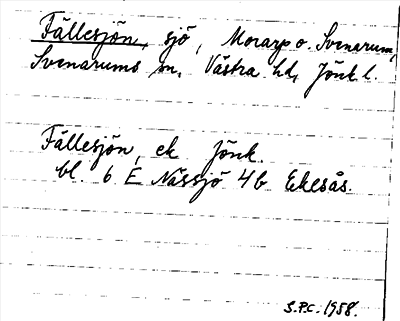 Fällesjön, sjö, Morarp o. Svenarum,
Svenarums sn, Västra hd, Jönk l.
Fällesjön, ek Jönk.
bl. 6 E Nässjö 4b Ekesås.
S.P.C. 1958.